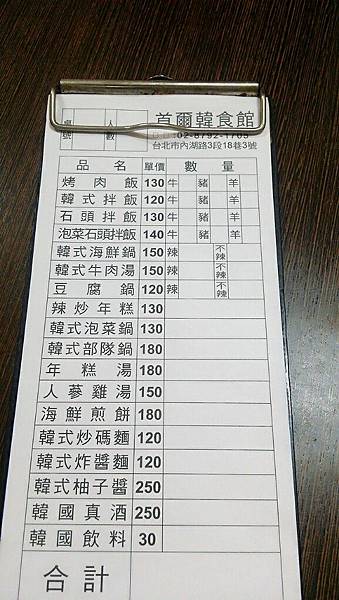 桌號 人數 首爾韓食館
02-8792-1705
台北市內湖路3段18巷3號
品名 單價 數量
烤肉飯 130 牛 豬 羊
韓式拌飯 120 牛 豬 羊
石頭拌飯 130 牛 豬 羊
泡菜石頭拌飯 140 牛 豬 羊
韓式海鮮鍋 150 辣 不辣
韓式牛肉湯 150 辣 不辣
豆腐鍋 120 辣 不辣
辣炒年糕 130
韓式泡菜鍋 130
韓式部隊鍋 180
年糕湯 180
人蔘雞湯 150
海鮮煎餅 180
韓式炒碼麵 120
韓式炸醬麵 120
韓式柚子醬 250
韓國真酒 250
韓國飲料 30
合計